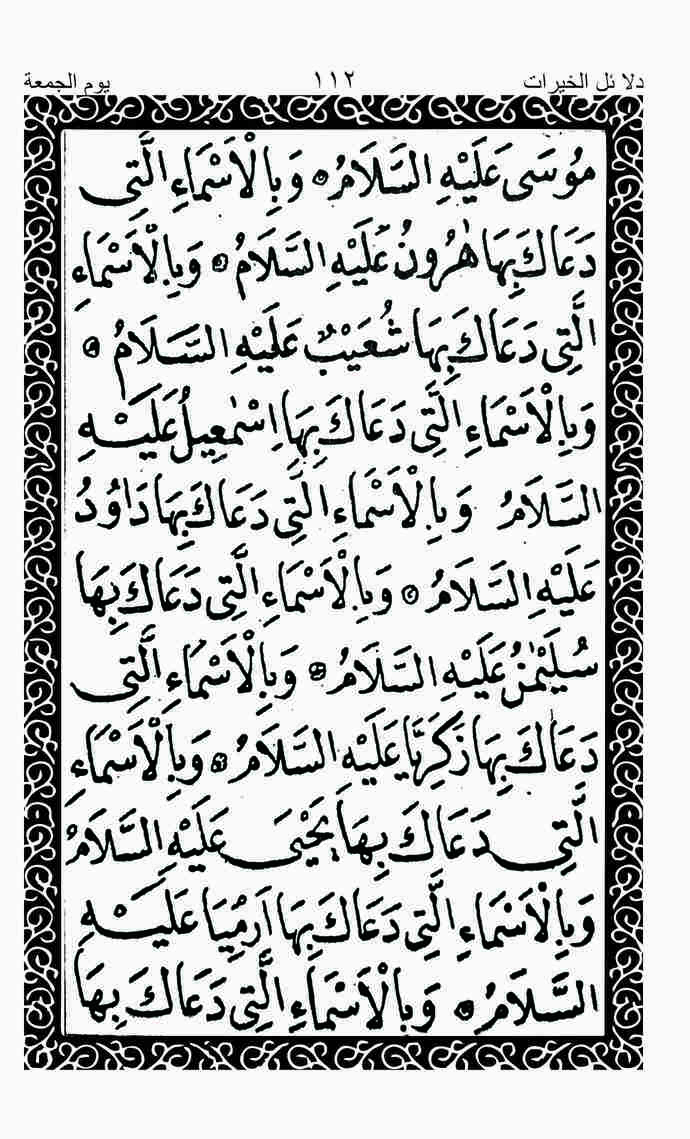 دلائل الخيرات ١١٢ يوم الجمعة
مُوسَى عَلَيْهِ السَّلَامُ وَبِالْأَسْمَاءِ الَّتِي
دَعَاكَ بِهَا هٰرُونُ عَلَيْهِ السَّلَامُ وَبِالْأَسْمَاءِ
الَّتِي دَعَاكَ بِهَا شُعَيْبٌ عَلَيْهِ السَّلَامُ
وَبِالْأَسْمَاءِ الَّتِي دَعَاكَ بِهَا اِسْمٰعِيلُ عَلَيْهِ
السَّلَامُ وَبِالْأَسْمَاءِ الَّتِي دَعَاكَ بِهَا دَاوُدُ
عَلَيْهِ السَّلَامُ وَبِالْأَسْمَاءِ الَّتِي دَعَاكَ بِهَا
سُلَيْمٰنُ عَلَيْهِ السَّلَامُ وَبِالْأَسْمَاءِ الَّتِي
دَعَاكَ بِهَا زَكَرِيَّا عَلَيْهِ السَّلَامُ وَبِالْأَسْمَاءِ
الَّتِي دَعَاكَ بِهَا يَحْيَى عَلَيْهِ السَّلَامُ
وَبِالْأَسْمَاءِ الَّتِي دَعَاكَ بِهَا اَرْمِيَا عَلَيْهِ
السَّلَامُ وَبِالْأَسْمَاءِ الَّتِي دَعَاكَ بِهَا